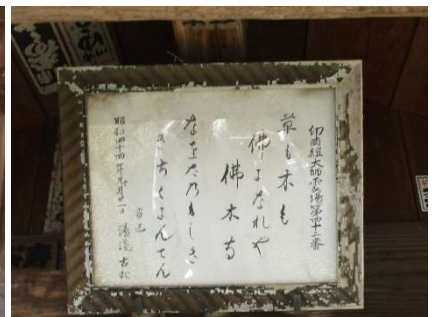 印西組大師霊場第四十二番
草も木も
佛になれや
佛木寺
なをたのもしき
きちくにんてん
昭和四十四年九月廿一日
湯浅古松